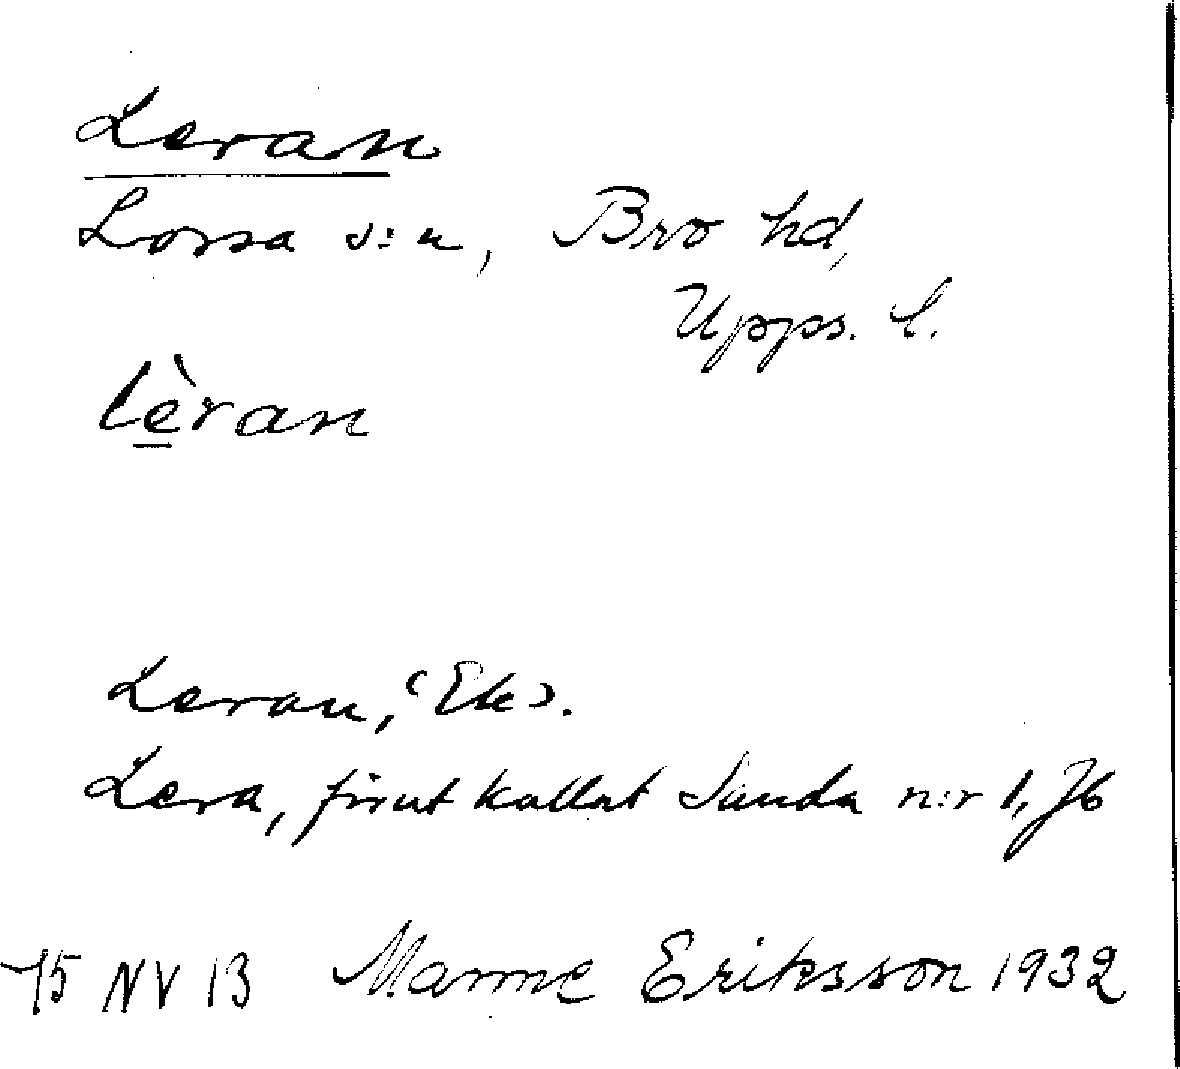 Leran
Lossa s:n, Bro hd,
Upps. l.
lèran
Leran, (Ek).
Lera, förut kallat Sanda n:r 1, Jb
75 NV 13 Manne Eriksson 1932